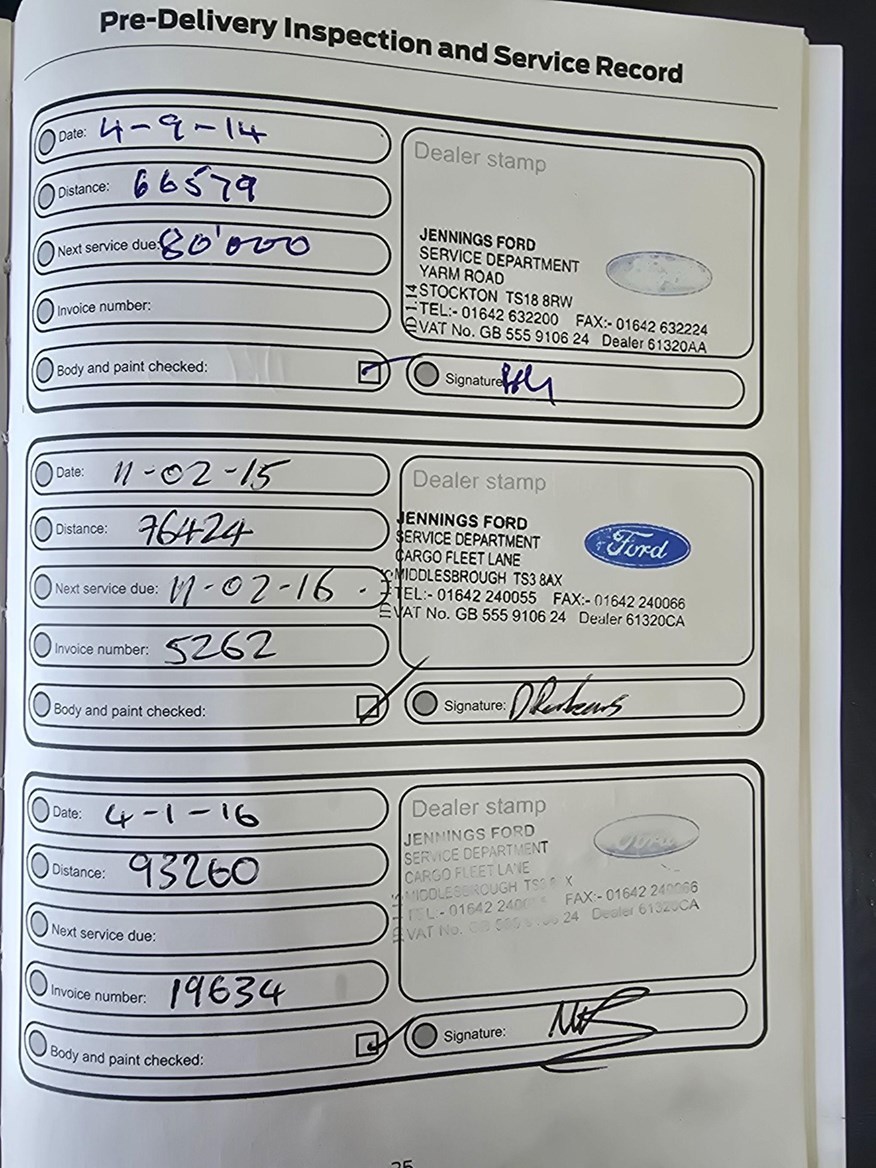 Pre-Delivery Inspection and Service Record
Date: 4-9-14
Distance: 66579
Next service due: 80'000
Invoice number:
Body and paint checked:
Dealer stamp
JENNINGS FORD
SERVICE DEPARTMENT
YARM ROAD
STOCKTON TS18 8RW
TEL:- 01642 632200 FAX:- 01642 632224
VAT No. GB 555 9106 24 Dealer 61320AA
Signature
Date: 11-02-15
Distance: 76424
Next service due: 11-02-16
Invoice number: 5262
Body and paint checked:
Dealer stamp
JENNINGS FORD
SERVICE DEPARTMENT
CARGO FLEET LANE
MIDDLESBROUGH TS3 8AX
TEL:- 01642 240055 FAX:- 01642 240066
VAT No. GB 555 9106 24 Dealer 61320CA
Ford
Signature:
Date: 4-1-16
Distance: 93260
Next service due:
Invoice number: 19634
Body and paint checked:
Dealer stamp
JENNINGS FORD
SERVICE DEPARTMENT
CARGO FLEET LANE
MIDDLESBROUGH
TEL:- 01642 FAX:- 01642 240066
VAT No. GB 24 Dealer 61320CA
Ford
Signature: